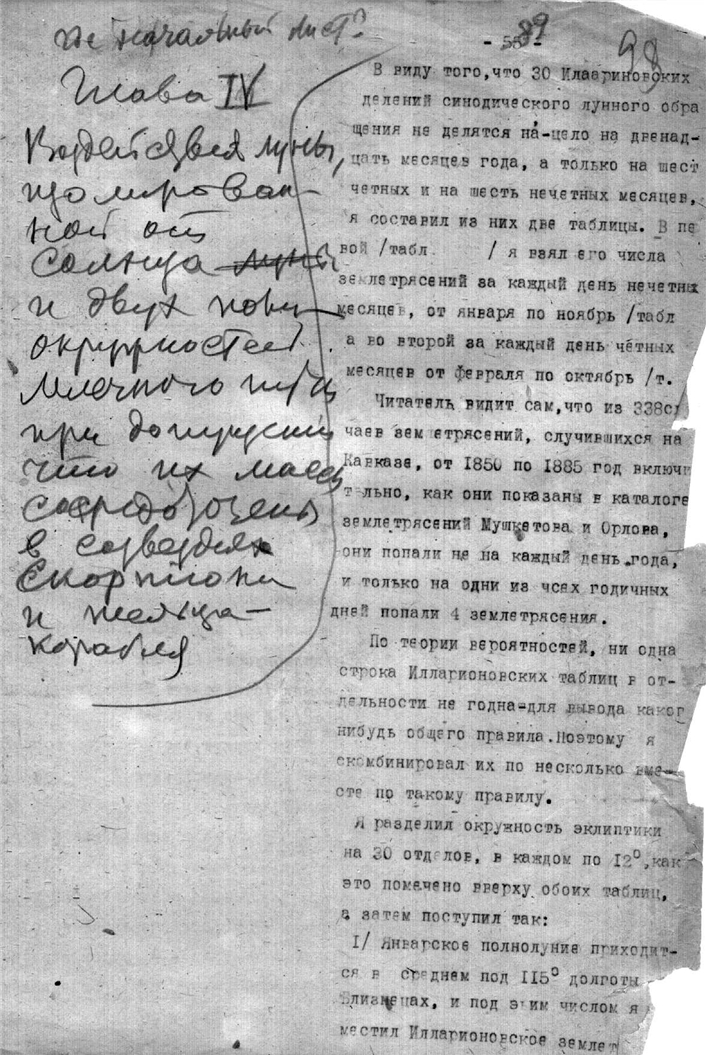 не начальный лист?
Глава IV
Воздействия луны,
изолирован-
ной от
Солнца
и двух
окружностей
млечного пути
при допущении
что их массы
сосредоточены
в созвездиях
Скорпиона
и
корабля
89
98
В виду того,что 30 Илаариновских
делений синодического лунного обра
щения не делятся на-цело на двенад-
цать месяцев года, а только на шест
четных и на шесть нечетных месяцев,
я составил из них две таблицы. В пе
вой /табл. / я взял его числа
землетрясений за каждый день нечетных
месяцев, от января по ноябрь /табл
а во второй за каждый день чётных
месяцев от февраля по октябрь /т.
Читатель видит сам,что из 338сл
чаев землетрясений, случившихся на
Кавказе, от 1850 по 1885 год включи
тельно, как они показаны в каталоге
землетрясений Мушкетова и Орлова,
они попали не на каждый день года,
и только на одни из чсех годичных
дней попали 4 землетрясения.
По теории вероятностей, ни одна
строка Илларионовских таблиц в от-
дельности не годна-для вывода каког
нибудь общего правила.Поэтому я
скомбинировал их по несколько вме-
сте по такому правилу.
Я разделил окружность эклиптики
на 30 отделов, в каждом по 12°,как
это помечено вверху обоих таблиц,
а затем поступил так:
1/ Январское полнолуние приходит-
ся в среднем под 115° долготы
Близнецах, и под этим числом я
местил Илларионовское землет